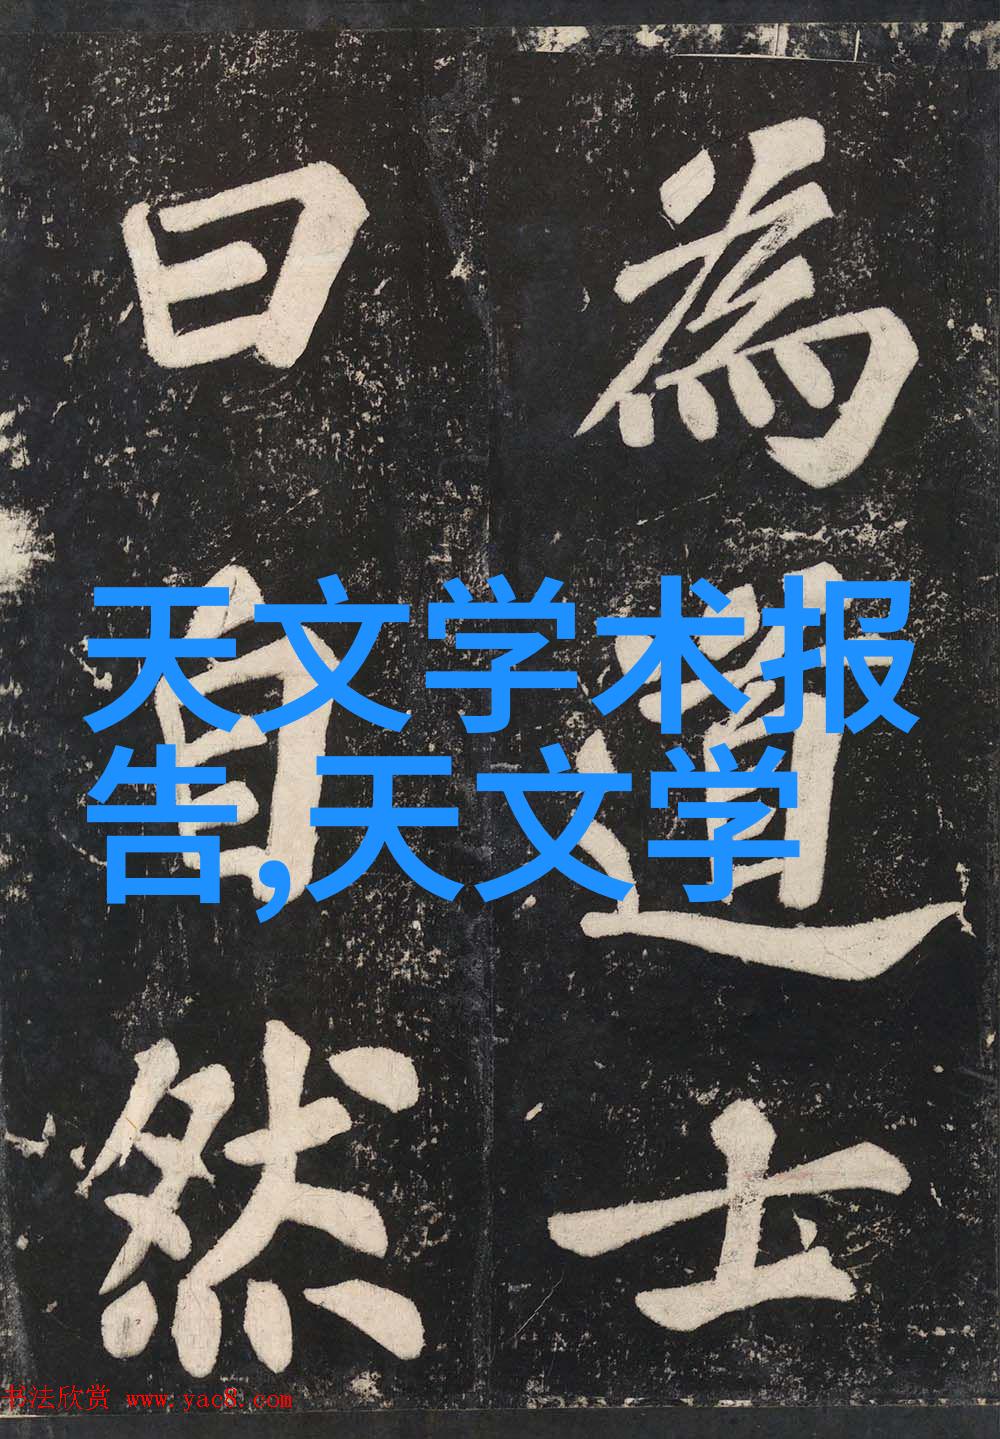 為道士
曰自然
天文学术报
告,天文学
书法欣赏 www.yac8.com